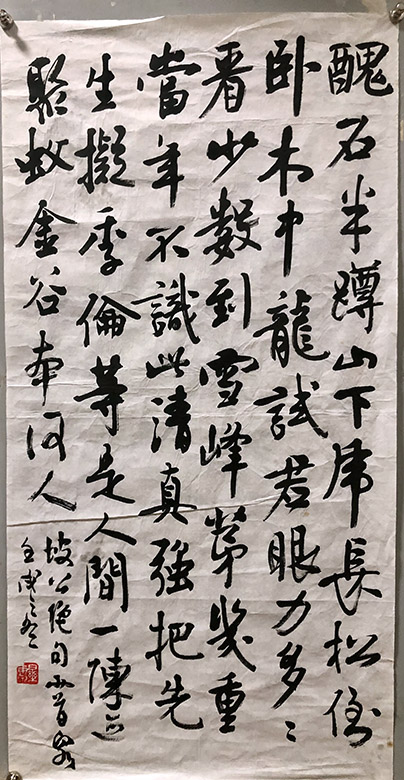 醜石半蹲山下虎長松倒
卧木中龍試君眼力多〻
看少數到雪峰第幾重
當年不識此清真強把先
生擬季倫等是人間一陳迹
聚蚊金谷本何人
坡公絕句
壬戌之冬